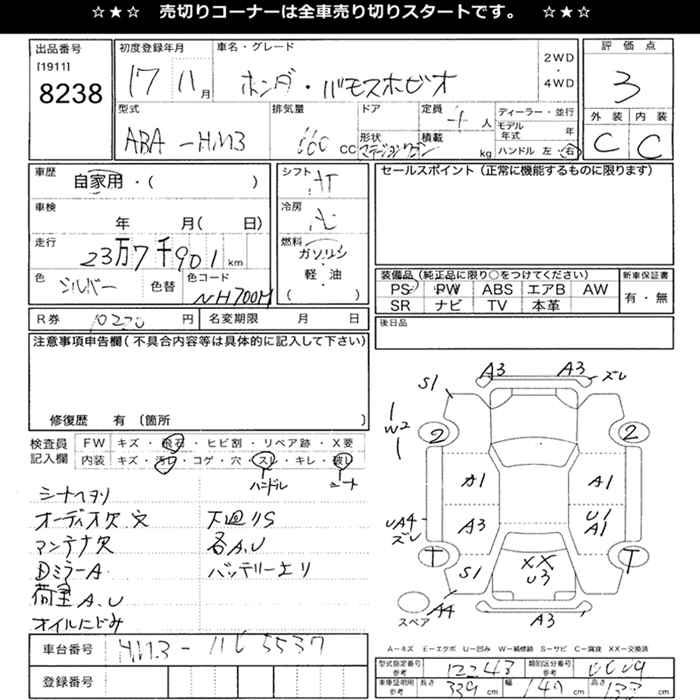 ☆★☆ 売切りコーナーは全車売り切りスタートです。 ☆★☆
出品番号
[1911]
8238
初度登録年月
17 11月
車名・グレード
ホンダ・バモスホビオ
2WD
・
4WD
評価点
3
型式
ABA-HM3
排気量
660 cc
ドア
形状
ステーションワゴン
定員
4人
積載
kg
ディーラー・並行
モデル
年式
ハンドル 左・右
外装 内装
C C
車歴
自家用・( )
車検
年 月( 日)
走行
23万7千901km
色
シルバー
色替
色コード
NH700M
シフト
AT
冷房
AC
燃料
ガソリン
軽・油
( )
セールスポイント(正常に機能するものに限ります)
装備品(純正品に限り○をつけてください)
PS PW ABS エアB AW
SR ナビ TV 本革
新車保証書
有・無
R券 10220円
名変期限 月 日
後日品
注意事項申告欄(不具合内容等は具体的に記入して下さい)
修復歴 有 〔箇所 〕
検査員
記入欄
FW キズ・飛石・ヒビ割・リペア跡・X要
内装 キズ・汚れ・コゲ・穴・スレ・キレ・破れ
ハンドル シート
シナヘタリ
オーディオ欠 穴 下廻りS
アンテナ欠 各A.U
DミラーA バッテリー上り
荷室A.U
オイルにじみ
S1 A3 A3 ズレ
W2
2 2
A1 A1
UA4 ズレ
A3 U1 A1
T T
S1 XX U3
A4 A3
スペア
A−キズ E−エクボ U−凹み W−補修跡 S−サビ C−腐食 XX−交換済
車台番号
HM3-
登録番号
型式指定番号
参考
12243
類別区分番号
参考
車庫証明用
参考
長さ 339 cm
幅 147 cm
高さ cm